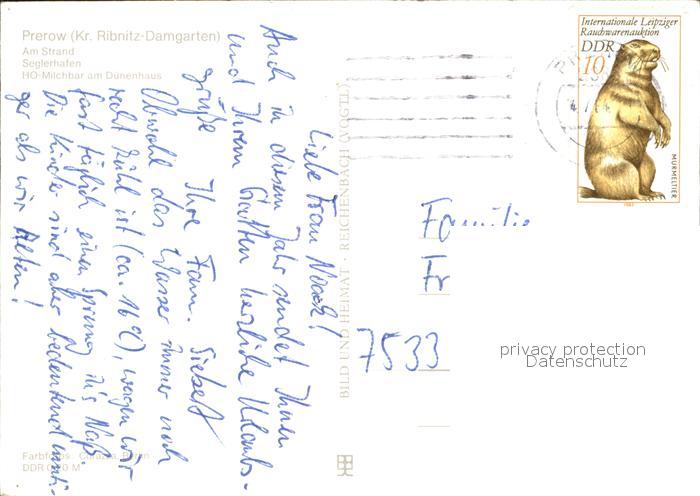 Prerow (Kr. Ribnitz-Damgarten)
Am Strand
Seglerhafen
HO-Milchbar am Dünenhaus
Liebe Frau Noack!
Auch in diesem Jahr sendet Ihnen
und Ihrem Gatten herzliche Urlaubs-
grüße Ihre Fam. Siebert
Obwohl das Wasser immer noch
recht kühl ist (ca. 16°C), wagen wir
fast täglich einen Sprung in's Naß.
Die Kinder sind aber bedeutend muti-
ger als wir Alten!
Farbfotos:
DDR M
BILD UND HEIMAT · REICHENBACH (VOGTL)
Internationale Leipziger
Rauchwarenauktion
DDR
10
MURMELTIER
1982
Familie
Fr
7533
privacy protection
Datenschutz